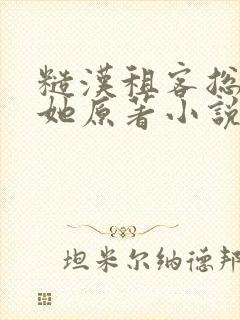 糙漢租客总
她原著小說
坦米尔纳德邦